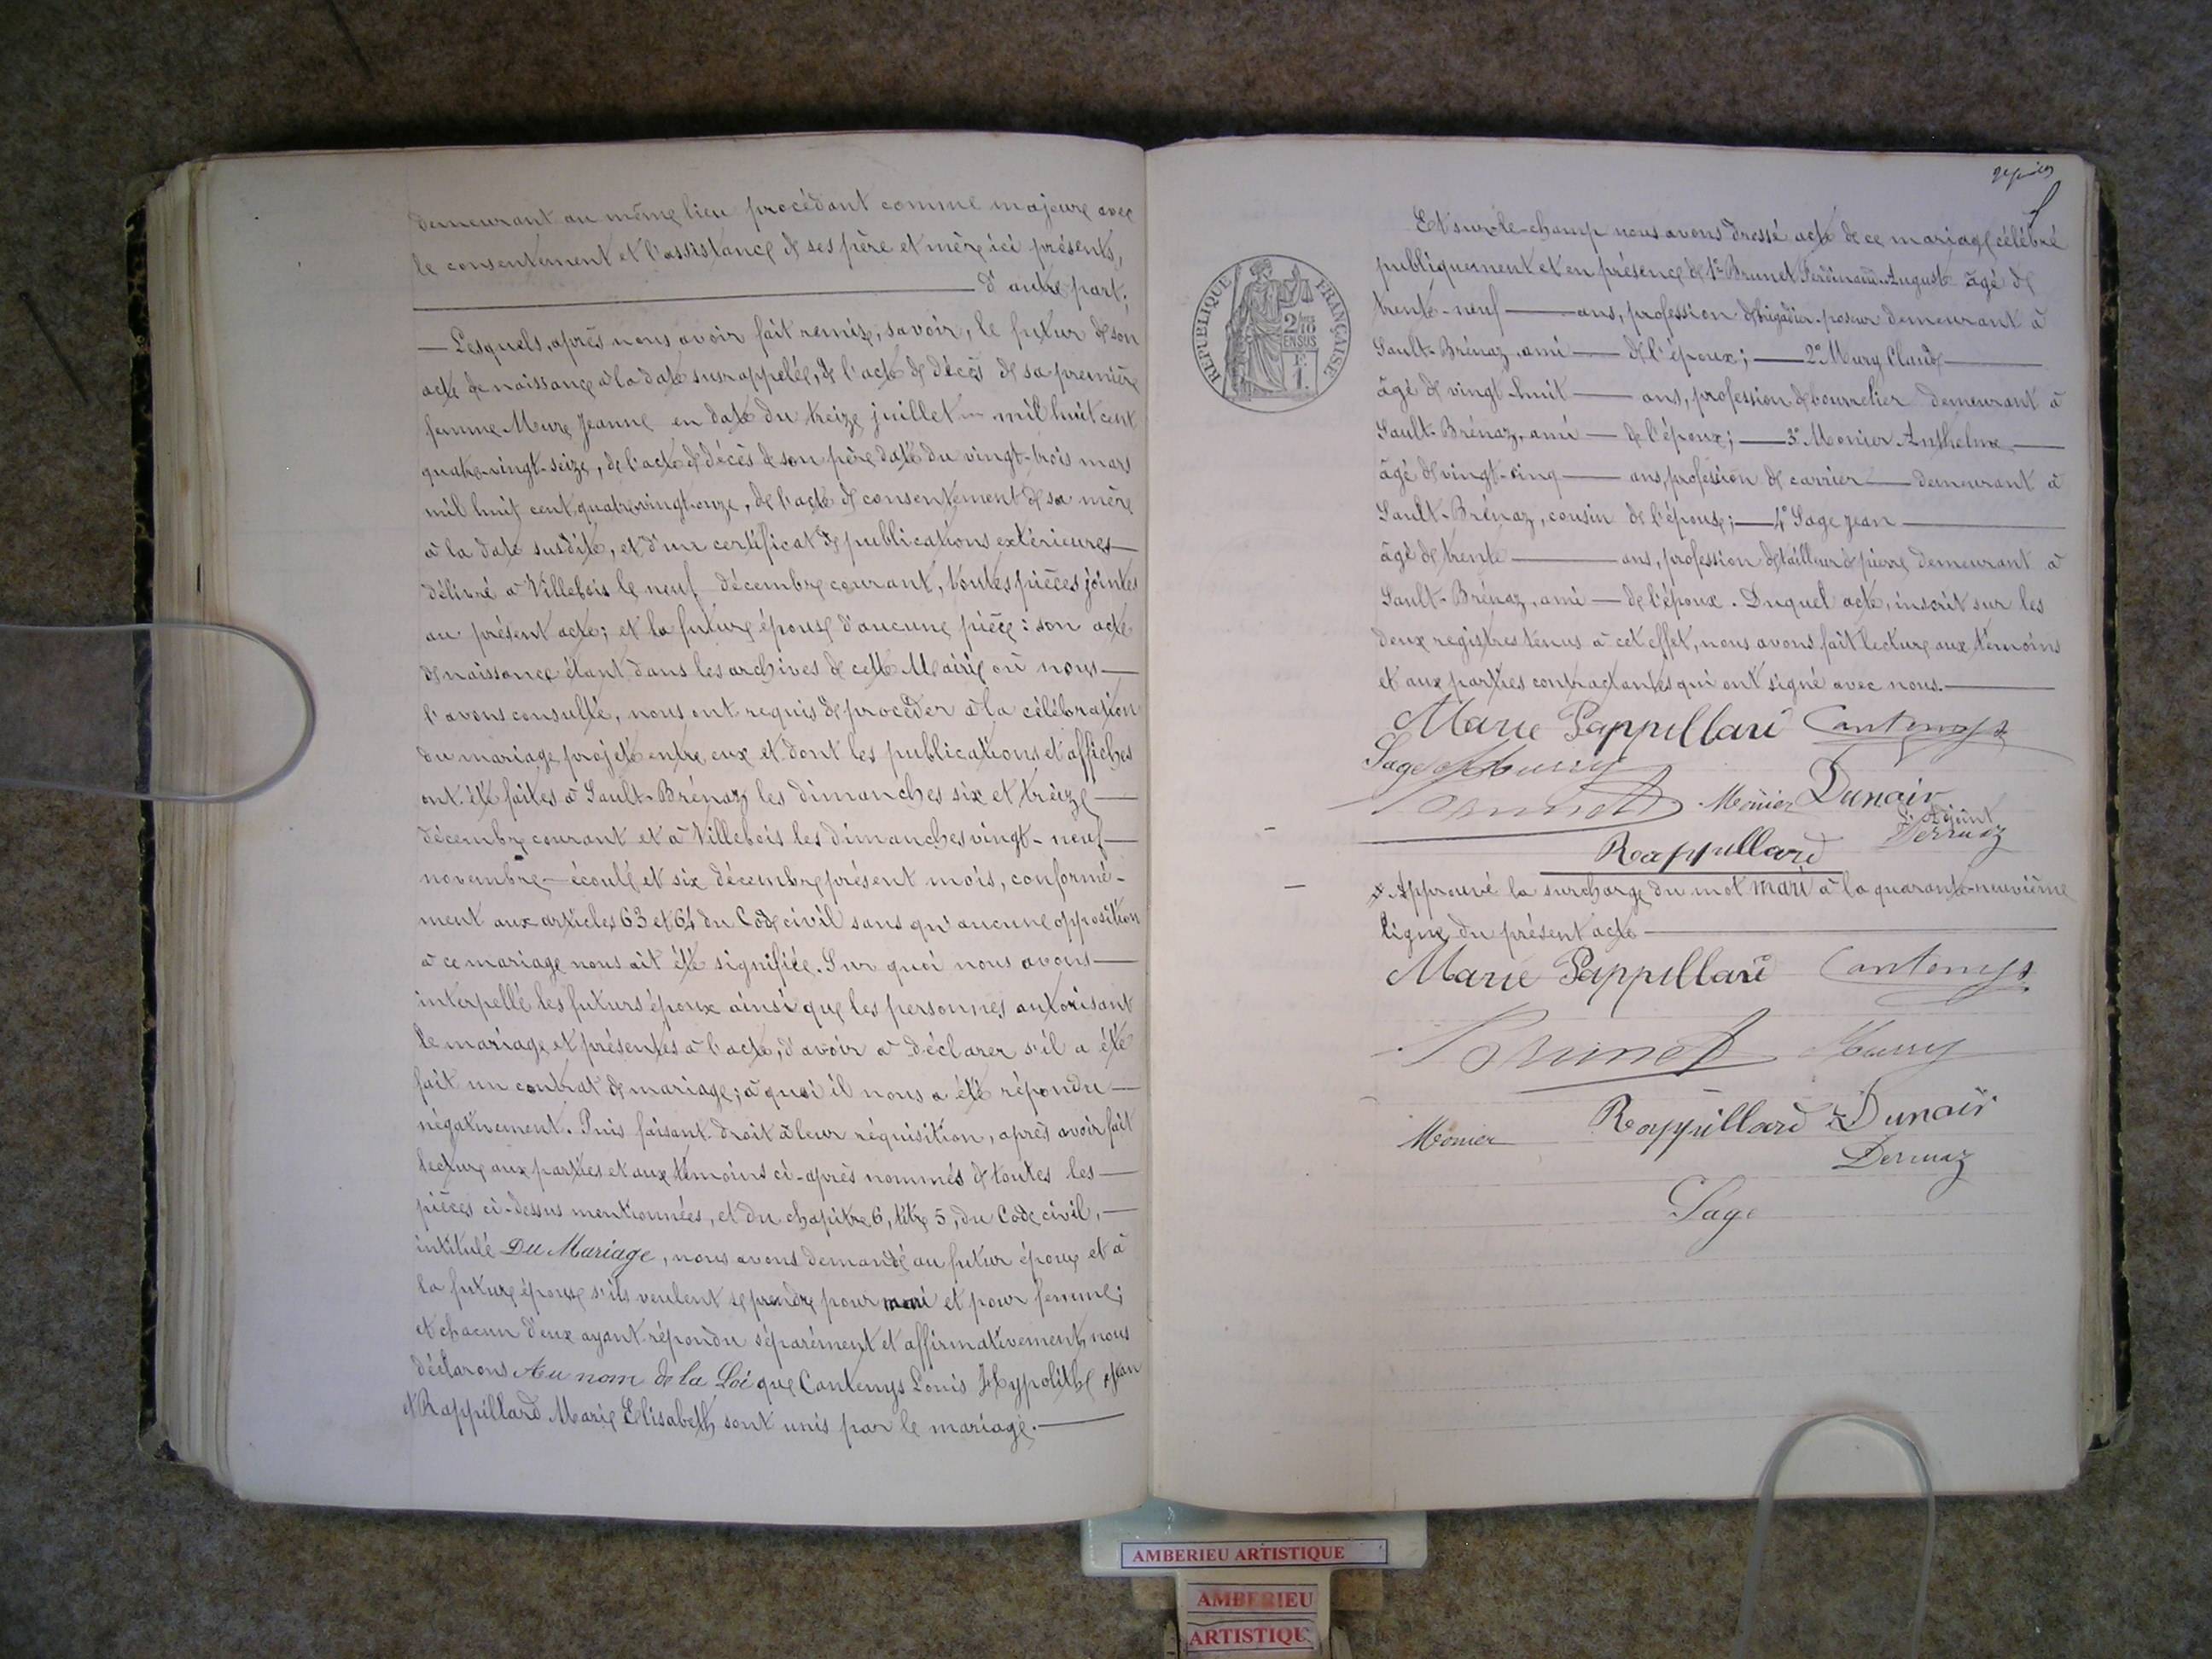 demeurant au même lieu procédant comme majeure avec
le consentement et l'assistance de ses père et mère ici présents,
d'autre part;
Lesquels, après nous avoir fait remise, savoir, le futur de son
acte de naissance à la date susrappelée, de l'acte de décès de sa première
femme Mure Jeanne en date du treize juillet mil huit cent
quatre-vingt-seize, de l'acte de décès de son père daté du vingt-trois mars
mil huit cent quatre vingt-onze, de l'acte de consentement de sa mère
à la date susdite, et d'un certificat de publications extérieures
délivré à Villebois le neuf décembre courant, toutes pièces jointes
au présent acte; et la future épouse d'aucune pièce: son acte
de naissance étant dans les archives de cette Mairie où nous
l'avons consulté, nous ont requis de procéder à la célébration
du mariage projeté entre eux et dont les publications et affiches
ont été faites à Sault-Brénaz les dimanches six et treize
décembre courant et à Villebois les dimanches vingt-neuf
novembre écoulé et six décembre présent mois, conformé-
ment aux articles 63 et 64 du Code civil sans qu'aucune opposition
à ce mariage nous ait été signifiée. Sur quoi nous avons
interpellé les futurs époux ainsi que les personnes autorisant
le mariage et présentes à l'acte, d'avoir à déclarer s'il a été
fait un contrat de mariage; à quoi il nous a été répondu
négativement. Puis faisant droit à leur réquisition, après avoir fait
lecture aux parties et aux témoins ci-après nommés de toutes les
pièces ci-dessus mentionnées, et du chapitre 6, titre 5, du Code civil,
intitulé Du Mariage, nous avons demandé au futur époux et à
la future épouse s'ils veulent se prendre pour mari et pour femme;
et chacun d'eux ayant répondu séparément et affirmativement, nous
déclarons Au nom de la Loi que Contenys Louis Hypolithe Jean
et Rappillard Marie Elisabeth sont unis par le mariage.
Et sur-le-champ nous avons dressé acte de ce mariage célébré
publiquement et en présence de 1° Brunet Ferdinand-Auguste âgé de
trente-neuf ans, profession de brigadier-poseur demeurant à
Sault-Brénaz, ami de l'époux; 2° Mury Claude
âgé de vingt-huit ans, profession de bourrelier demeurant à
Sault-Brénaz, ami de l'époux; 3° Monier Anthelme
âgé de vingt-cinq ans, profession de carrier demeurant à
Sault-Brénaz, cousin de l'épouse; 4° Sage Jean
âgé de trente ans, profession de tailleur de pierre demeurant à
Sault-Brénaz, ami de l'époux. Duquel acte, inscrit sur les
deux registres tenus à cet effet, nous avons fait lecture aux témoins
et aux parties contractantes qui ont signé avec nous.
RÉPUBLIQUE FRANÇAISE
2/10 EN SUS
1F
Marie Rappillard Contenys
Sage Mury
Brunet Monier Dunoir
l'Adjoint
Derruaz
Rappillard
Approuvé la surcharge du mot mari à la quarante-neuvième
ligne du présent acte
Marie Rappillard Contenys
Brunet Mury
Monier Rappillard Dunoir
Derruaz
Sage
AMBERIEU ARTISTIQUE
AMBERIEU
ARTISTIQUE